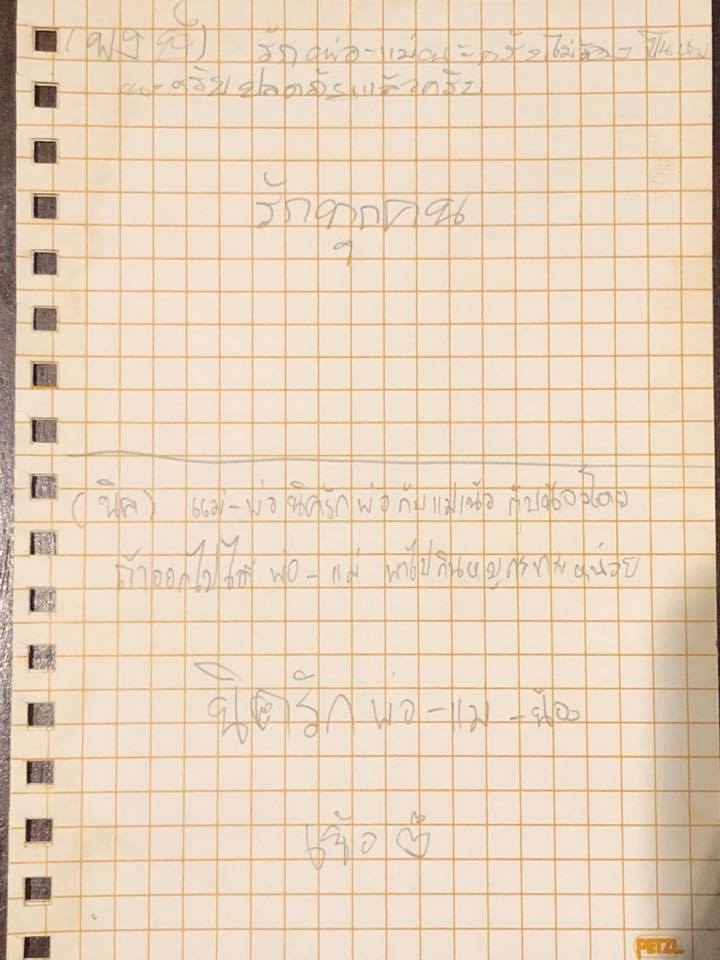 (พงษ์) รักพ่อ-แม่นะครับไม่ต้องเป็นห่วง
นะครับปลอดภัยแล้วครับ
รักทุกคน
(นิค) แม่-พ่อนิครักพ่อกับแม่
ถ้าออกไปได้ พ่อ-แม่ พาไปกินหมูกระทะหน่วย
นิครัก พ่อ-แม่-น้อง
PETZL